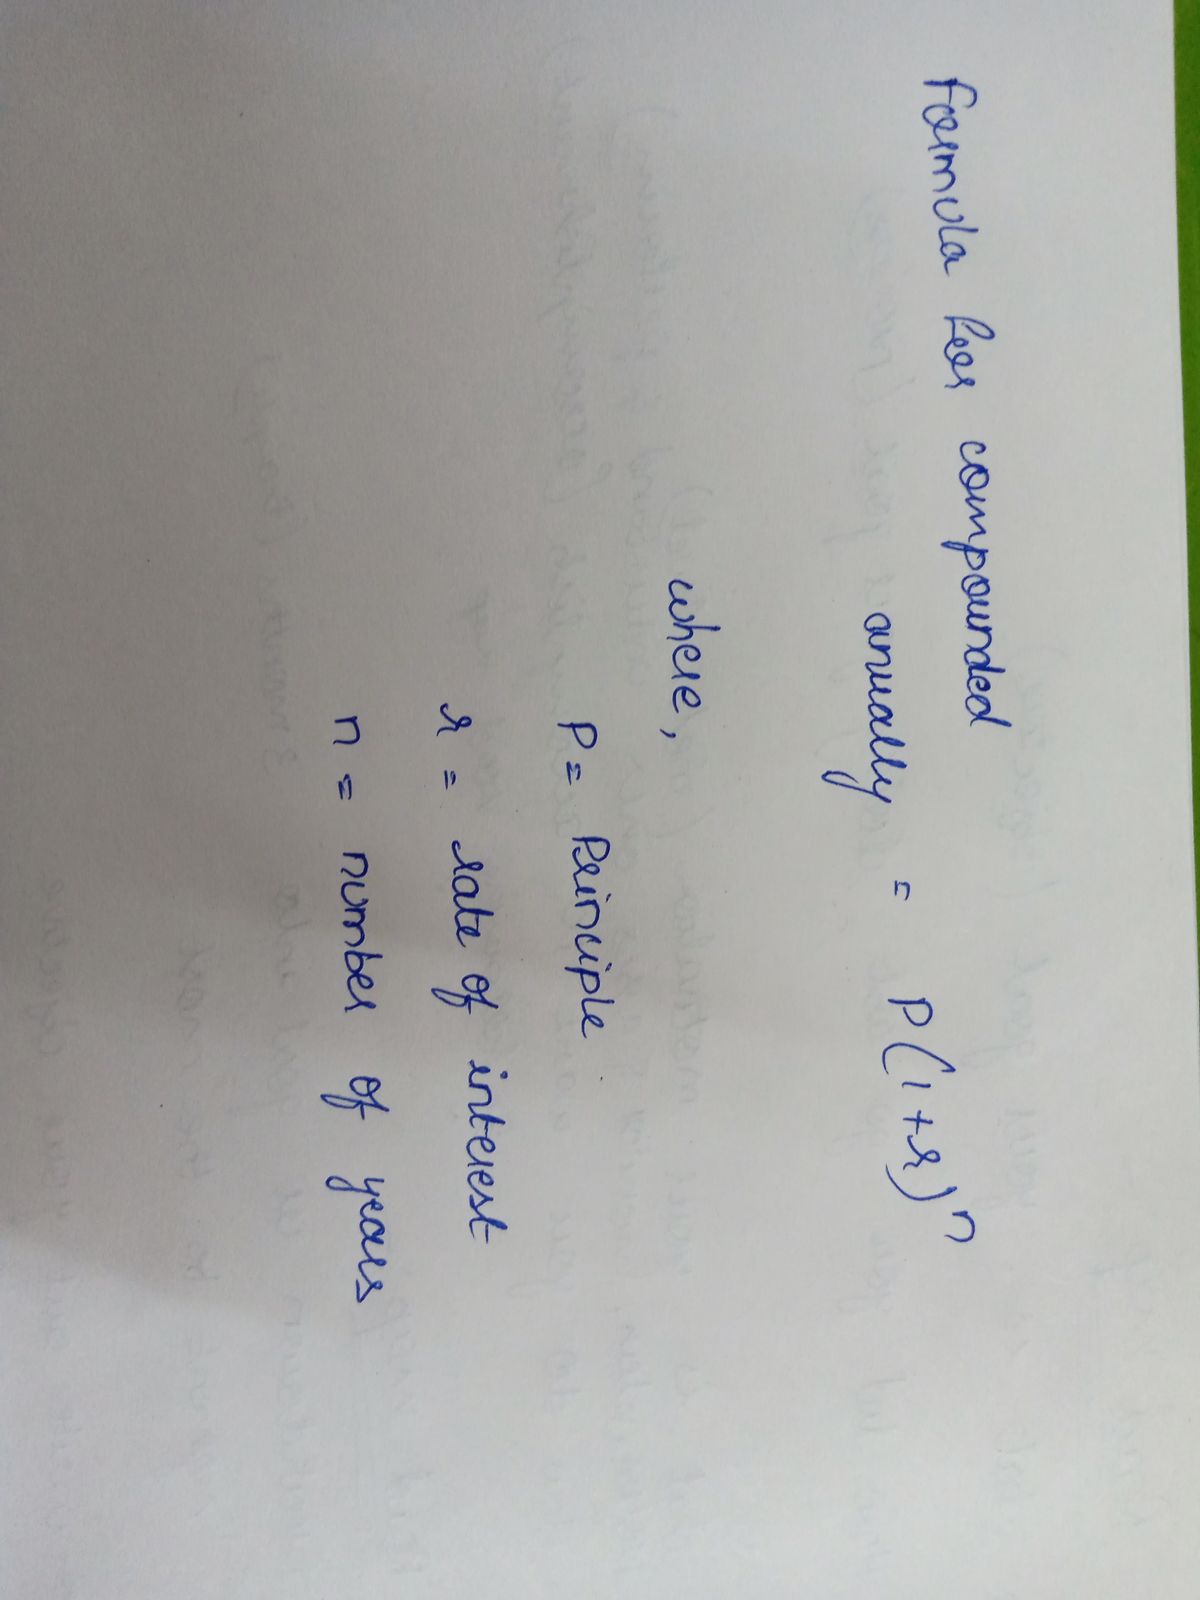 Formula for compounded
anually = P(1+r)ⁿ
where,
P = Principle
r = rate of interest
n = number of years